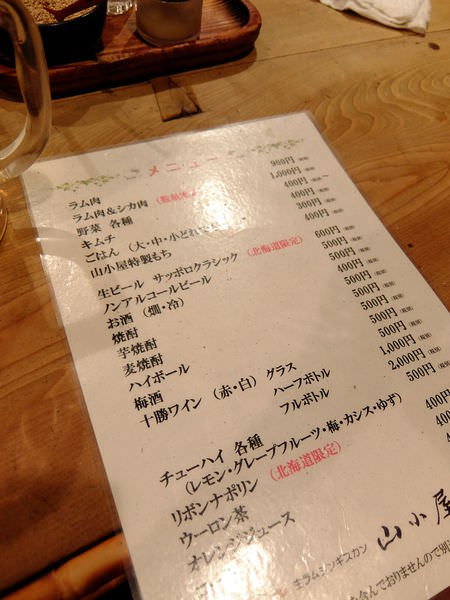 メニュー
ラム肉 980円 (税別)
ラム肉&シカ肉 1,000円 (税別)
野菜 各種 400円 (税別)～
キムチ 400円 (税別)
ごはん (大・中・小どれでも) 300円 (税別)
山小屋特製もち 400円 (税別)
生ビール サッポロクラシック (北海道限定) 600円 (税別)
ノンアルコールビール 500円 (税別)
お酒 (燗・冷) 500円 (税別)
焼酎 400円 (税別)
芋焼酎 500円 (税別)
麦焼酎 500円 (税別)
ハイボール 500円 (税別)
梅酒 500円 (税別)
十勝ワイン (赤・白) グラス 500円 (税別)
ハーフボトル 1,000円 (税別)
フルボトル 2,000円 (税別)
チューハイ 各種 500円 (税別)
(レモン・グレープフルーツ・梅・カシス・ゆず)
リボンナポリン (北海道限定) 400円
ウーロン茶 400円
オレンジジュース 400
生ラムジンギスカン 山小屋
含んでおりませんので別